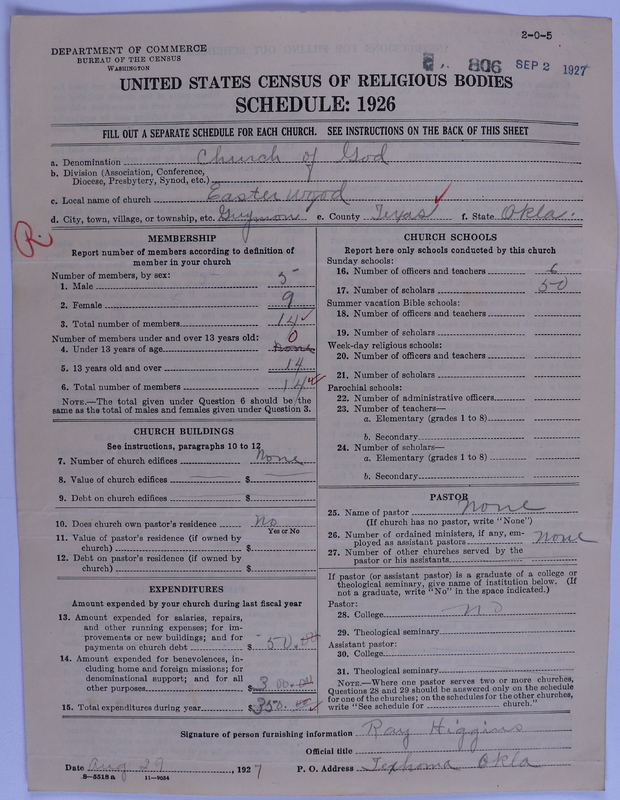 2-0-5
DEPARTMENT OF COMMERCE
BUREAU OF THE CENSUS
WASHINGTON
806 SEP 2 1927
UNITED STATES CENSUS OF RELIGIOUS BODIES
SCHEDULE: 1926
FILL OUT A SEPARATE SCHEDULE FOR EACH CHURCH. SEE INSTRUCTIONS ON THE BACK OF THIS SHEET
a. Denomination Church of God
b. Division (Association, Conference,
Diocese, Presbytery, Synod, etc.)
c. Local name of church Easterwood
d. City, town, village, or township, etc. Guymon e. County Texas f. State Okla.
R.
MEMBERSHIP
Report number of members according to definition of
member in your church
Number of members, by sex:
1. Male 5
2. Female 9
3. Total number of members 14
Number of members under and over 13 years old: 0
4. Under 13 years of age None
5. 13 years old and over 14
6. Total number of members 14
NOTE.—The total given under Question 6 should be the
same as the total of males and females given under Question 3.
CHURCH BUILDINGS
See instructions, paragraphs 10 to 12
7. Number of church edifices None
8. Value of church edifices $
9. Debt on church edifices $
10. Does church own pastor's residence No
Yes or No
11. Value of pastor's residence (if owned by
church) $
12. Debt on pastor's residence (if owned by
church) $
EXPENDITURES
Amount expended by your church during last fiscal year
13. Amount expended for salaries, repairs,
and other running expenses; for im-
provements or new buildings; and for
payments on church debt $ 50.00
14. Amount expended for benevolences, in-
cluding home and foreign missions; for
denominational support; and for all
other purposes $ 300.00
15. Total expenditures during year $ 350.00
CHURCH SCHOOLS
Report here only schools conducted by this church
Sunday schools:
16. Number of officers and teachers 6
17. Number of scholars 50
Summer vacation Bible schools:
18. Number of officers and teachers
19. Number of scholars
Week-day religious schools:
20. Number of officers and teachers
21. Number of scholars
Parochial schools:
22. Number of administrative officers
23. Number of teachers—
a. Elementary (grades 1 to 8)
b. Secondary
24. Number of scholars—
a. Elementary (grades 1 to 8)
b. Secondary
PASTOR
25. Name of pastor None
(If church has no pastor, write "None")
26. Number of ordained ministers, if any, em-
ployed as assistant pastors None
27. Number of other churches served by the
pastor or his assistants
If pastor (or assistant pastor) is a graduate of a college or
theological seminary, give name of institution below. (If
not a graduate, write "No" in the space indicated.)
Pastor:
28. College No
29. Theological seminary
Assistant pastor:
30. College
31. Theological seminary
NOTE.—Where one pastor serves two or more churches,
Questions 28 and 29 should be answered only on the schedule
for one of the churches; on the schedules for the other churches,
write "See schedule for church."
Signature of person furnishing information Ray Higgins
Official title
Date Aug 29, 1927 P. O. Address Texhoma Okla
8-5518a 11-9034